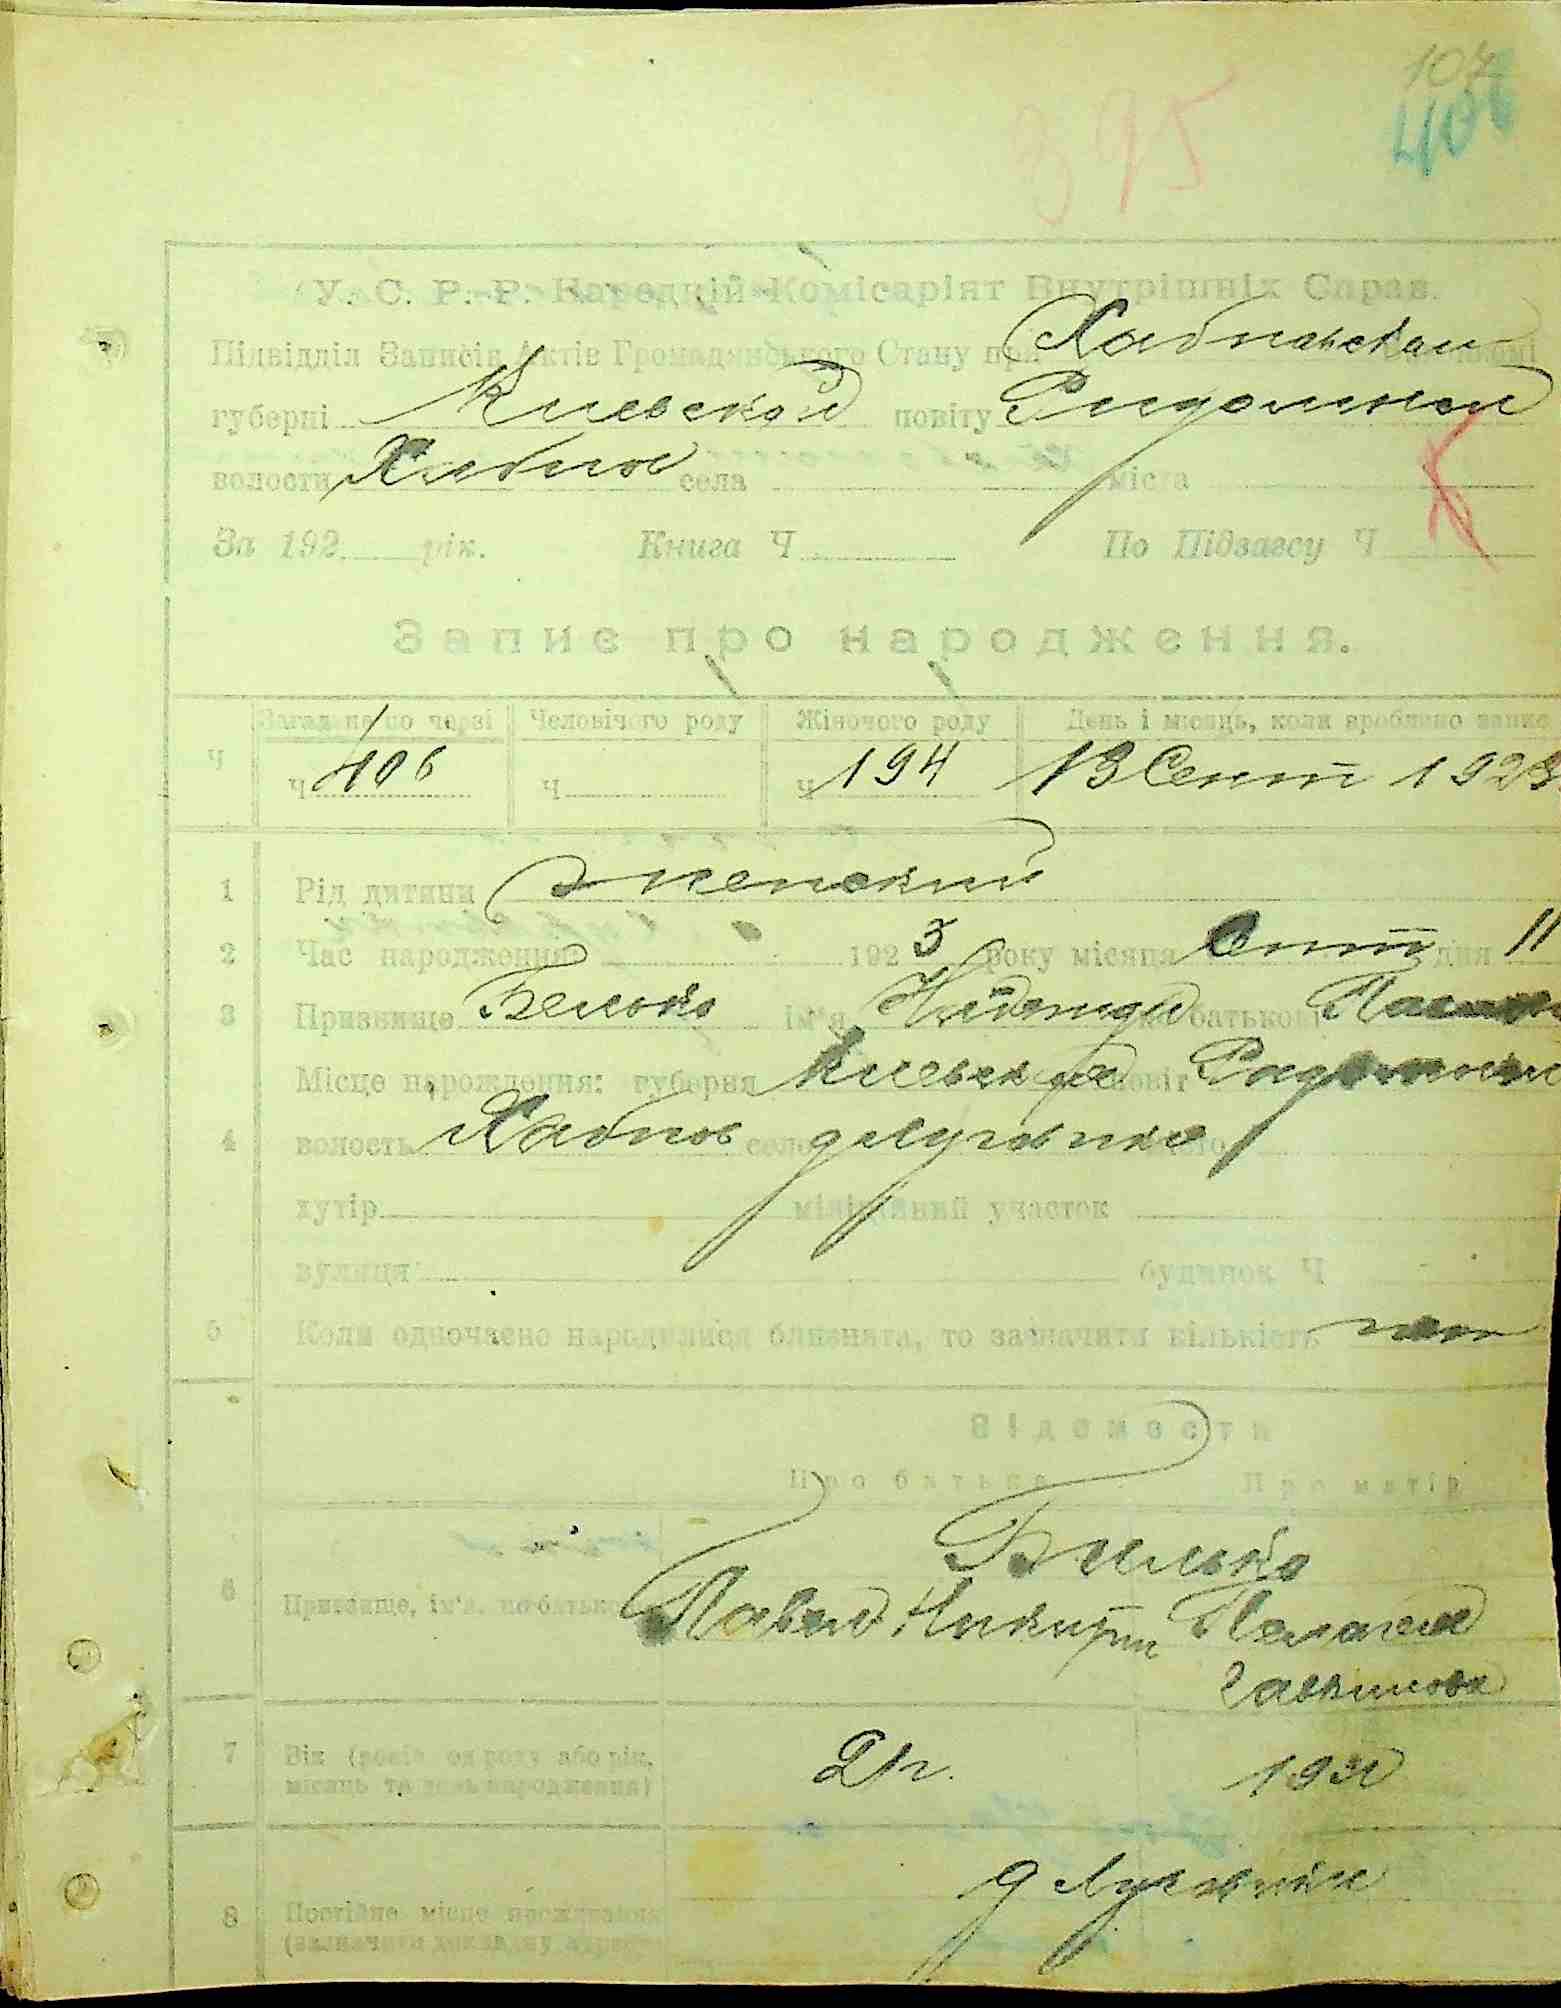 107
395
406
У. С. Р. Р. Народній Комісаріят Внутрішніх Справ.
Підвідділ Записів Актів Громадянського Стану при Хабнавском
губерні Киевской повіту Радомысл
волости Хабное села міста
За 192 рік. Книга Ч По Підзагсу Ч
Запис про народження.
Ч Загальне по черзі Человічого роду Жіночого роду День і місяць, коли зроблено запис
Ч 406 Ч Ч 194 13 Сент 1923
1 Рід дитини женский
2 Час народження: 1923 року місяця Сент дня 11
3 Призвище Белько ім'я Надежда по батькові
4 Місце народження: губерня Киевская повіт
волость Хабное село д Луговика
хутір міліційний участок
вулиця будинок Ч
5 Коли одночасно народилися близнята, то зазначити кількість нет
Відомости
Про батька Про матір
Билько
6 Призвище, ім'я, по батькові Павел Никитин Пелагея
7 Вік (років од роду або рік, 21 г. 19
місяць та день народження)
д Луговики
8 Постійне місце проживання
(зазначити докладну адресу)